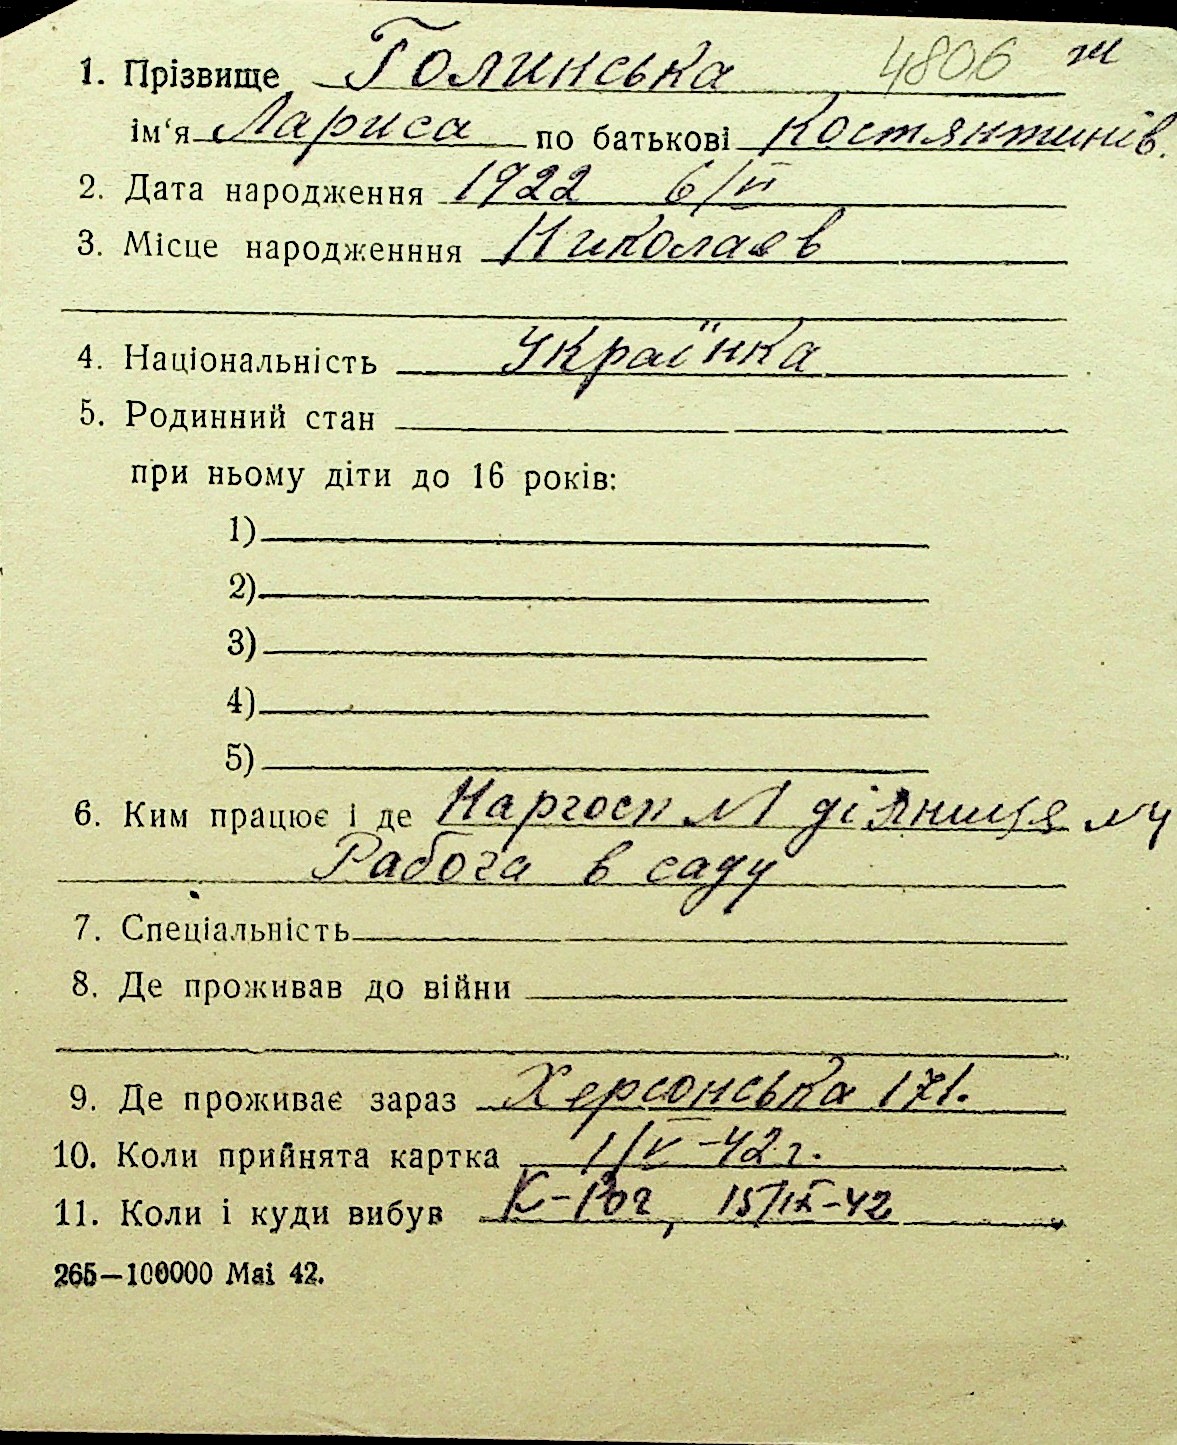 1. Прізвище Голинська 4806 ж
ім‘я Лариса по батькові Костянтинів.
2. Дата народження 1922 6/VI
3. Місце народженння Николаєв
4. Національність Українка
5. Родинний стан
при ньому діти до 16 років:
1)
2)
3)
4)
5)
6. Ким працює і де Наргосп №1 діляниця №4
Работа в саду
7. Спеціальність
8. Де проживав до війни
9. Де проживає зараз Херсонська 171.
10. Коли прийнята картка 1/V-42 г.
11. Коли і куди вибув К-Рог, 15/IX-42
265—100000 Mai 42.